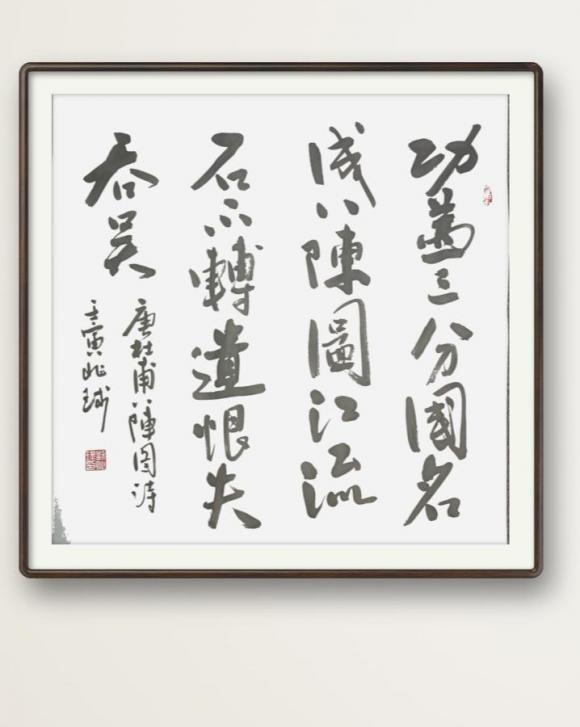 功蓋三分國名
成八陳圖江流
石不轉遺恨失
吞吴
唐杜甫八陳圖詩
壬寅兆球